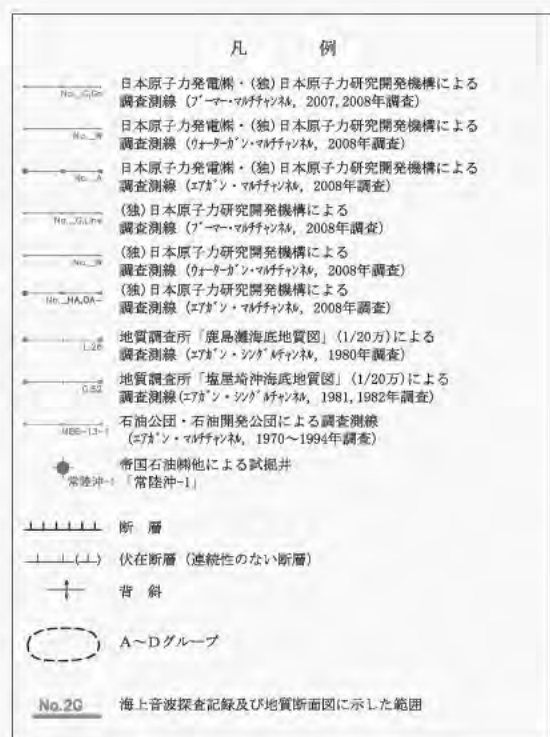 凡 例
No._G,Gn 日本原子力発電㈱・(独)日本原子力研究開発機構による
調査測線(ブーマー・マルチチャンネル, 2007,2008年調査)
No._W 日本原子力発電㈱・(独)日本原子力研究開発機構による
調査測線(ウォーターガン・マルチチャンネル, 2008年調査)
No._A 日本原子力発電㈱・(独)日本原子力研究開発機構による
調査測線(エアガン・マルチチャンネル, 2008年調査)
No._G,Line (独)日本原子力研究開発機構による
調査測線(ブーマー・マルチチャンネル, 2008年調査)
No._W (独)日本原子力研究開発機構による
調査測線(ウォーターガン・マルチチャンネル, 2008年調査)
No._NA,OA- (独)日本原子力研究開発機構による
調査測線(エアガン・マルチチャンネル, 2008年調査)
L.26 地質調査所「鹿島灘海底地質図」(1/20万)による
調査測線(エアガン・シングルチャンネル, 1980年調査)
G.52 地質調査所「塩屋埼沖海底地質図」(1/20万)による
調査測線(エアガン・シングルチャンネル, 1981,1982年調査)
石油公団・石油開発公団による調査測線
(エアガン・マルチチャンネル, 1970〜1994年調査)
帝国石油㈱他による試掘井
常陸沖-1 「常陸沖-1」
断 層
(⊥) 伏在断層(連続性のない断層)
背 斜
A〜Dグループ
No.2G 海上音波探査記録及び地質断面図に示した範囲